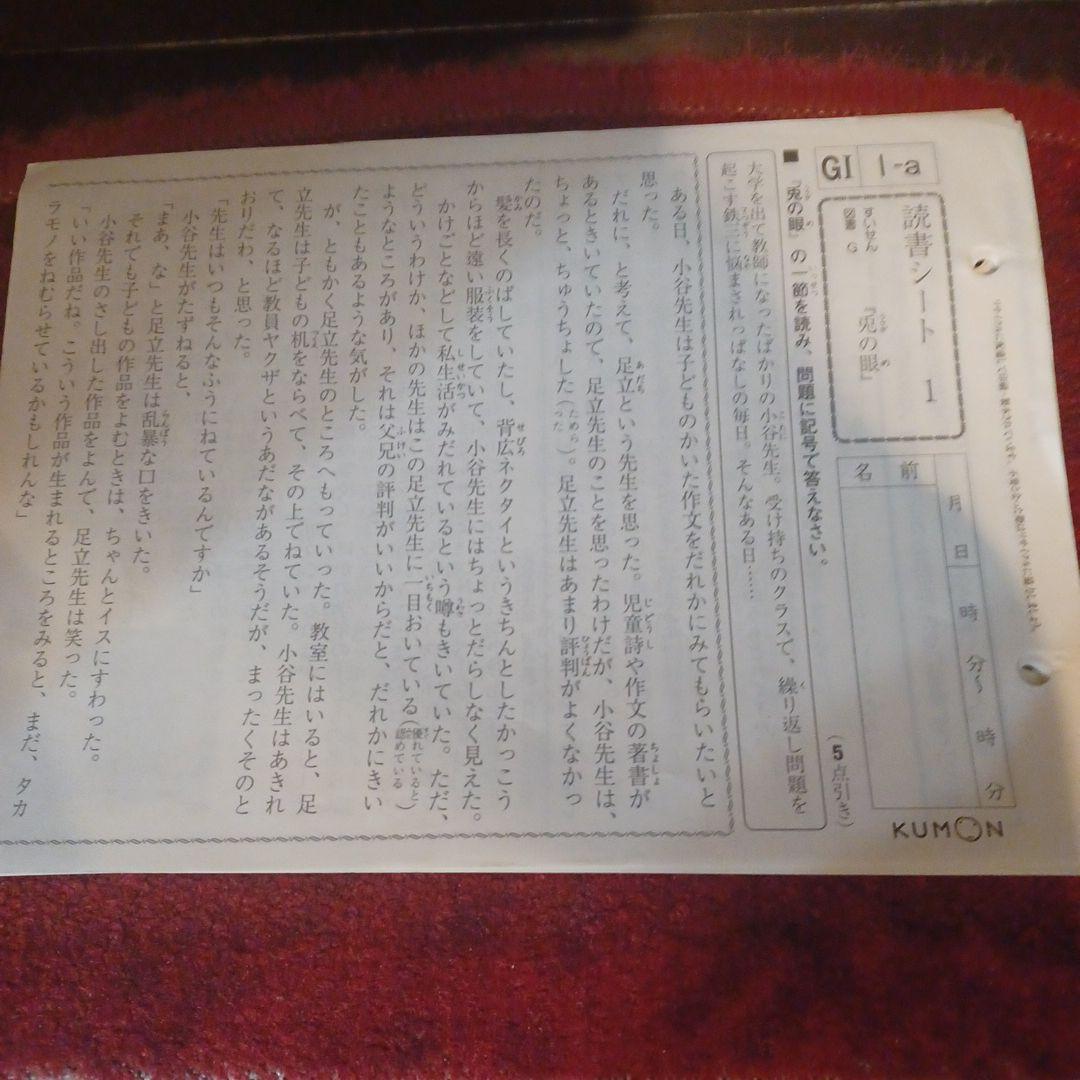 GI 1-a
読書シート 1
すいせん図書 G 『兎の眼』
名前
月 日 時 分〜 時 分
KUMON
■『兎の眼』の一節を読み、問題に記号で答えなさい。
(5点引き)
大学を出て教師になったばかりの小谷先生。受け持ちのクラスで、繰り返し問題を
起こす鉄三に悩まされっぱなしの毎日。そんなある日……
ある日、小谷先生は子どものかいた作文をだれかにみてもらいたいと
思った。
だれに、と考えて、足立という先生を思った。児童詩や作文の著書が
あるときいていたので、足立先生のことを思ったわけだが、小谷先生は、
ちょっと、ちゅうちょした(ためらった)。足立先生はあまり評判がよくなかっ
たのだ。
髪を長くのばしていたし、背広ネクタイというきちんとしたかっこう
からほど遠い服装をしていて、小谷先生にはちょっとだらしなく見えた。
かけごとなどして私生活がみだれているという噂もきいていた。ただ、
どういうわけか、ほかの先生はこの足立先生に一目おいている(優れていると認めている)
ようなところがあり、それは父兄の評判がいいからだと、だれかにきい
たこともあるような気がした。
が、ともかく足立先生のところへもっていった。教室にはいると、足
立先生は子どもの机をならべて、その上でねていた。小谷先生はあきれ
て、なるほど教員ヤクザというあだながあるそうだが、まったくそのと
おりだわ、と思った。
「先生はいつもそんなふうにねているんですか」
小谷先生がたずねると、
「まあ、な」と足立先生は乱暴な口をきいた。
それでも子どもの作品をよむときは、ちゃんとイスにすわった。
小谷先生のさし出した作品をよんで、足立先生は笑った。
「いい作品だね。こういう作品が生まれるところをみると、まだ、タカ
ラモノをねむらせているかもしれんな」